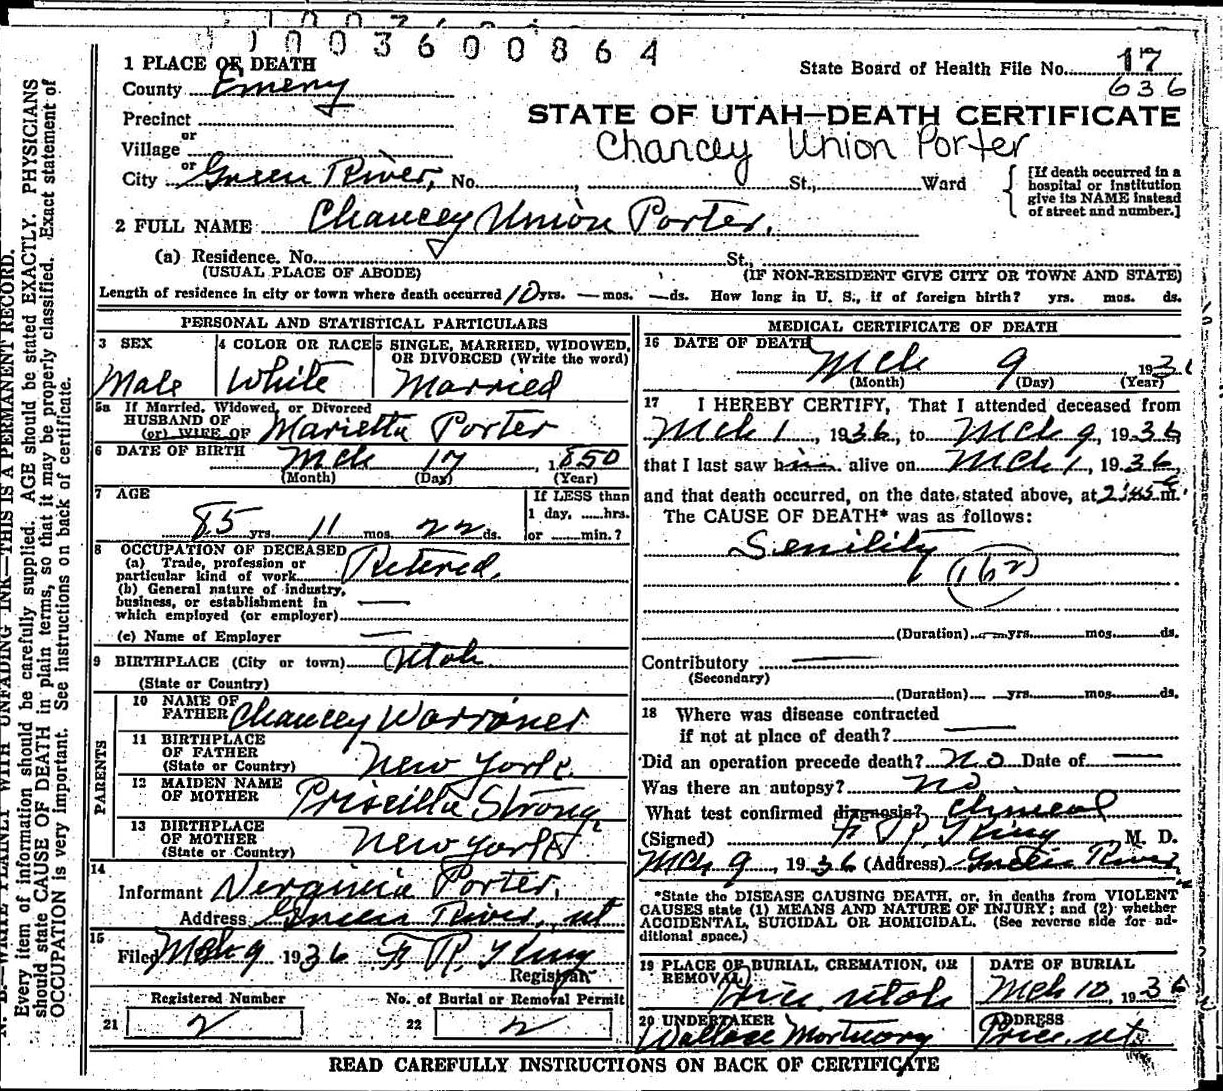 1003600864
1 PLACE OF DEATH
State Board of Health File No. 17
636
County Emery
STATE OF UTAH—DEATH CERTIFICATE
Precinct
or
Chancey Union Porter
Village
or
City Green River, No. , St., Ward
[If death occurred in a
hospital or institution
give its NAME instead
of street and number.]
2 FULL NAME Chancey Union Porter.
(a) Residence. No. St.,
(USUAL PLACE OF ABODE) (IF NON-RESIDENT GIVE CITY OR TOWN AND STATE)
Length of residence in city or town where death occurred 10 yrs. — mos. — ds. How long in U. S., if of foreign birth? yrs. mos. ds.
PERSONAL AND STATISTICAL PARTICULARS
3 SEX
Male
4 COLOR OR RACE
White
5 SINGLE, MARRIED, WIDOWED,
OR DIVORCED (Write the word)
Married
5a If Married, Widowed, or Divorced
HUSBAND OF
(or) WIFE OF Marietta Porter
6 DATE OF BIRTH Mch 17, 1850
(Month) (Day) (Year)
7 AGE
85 yrs. 11 mos. 22 ds.
If LESS than
1 day, ......hrs.
or ......min.?
8 OCCUPATION OF DECEASED
(a) Trade, profession or
particular kind of work Retired.
(b) General nature of industry,
business, or establishment in
which employed (or employer) —
(c) Name of Employer —
9 BIRTHPLACE (City or town) Utah
(State or Country)
PARENTS
10 NAME OF
FATHER Chancey Warriner
11 BIRTHPLACE
OF FATHER
(State or Country) New York.
12 MAIDEN NAME
OF MOTHER Priscilla Strong
13 BIRTHPLACE
OF MOTHER
(State or Country) New York
14
Informant Porter.
Address Green River, ut
15
Filed Mch 9 1936 F. R. King
Registrar
Registered Number
21 2
No. of Burial or Removal Permit
22 2
MEDICAL CERTIFICATE OF DEATH
16 DATE OF DEATH
Mch 9, 1936
(Month) (Day) (Year)
17 I HEREBY CERTIFY, That I attended deceased from
Mch 1, 1936, to Mch 9, 1936
that I last saw him alive on Mch 1, 1936,
and that death occurred, on the date stated above, at 2:45 m.
The CAUSE OF DEATH* was as follows:
Senility
(162)
(Duration) — yrs. mos. ds.
Contributory —
(Secondary)
(Duration) — yrs. mos. ds.
18 Where was disease contracted
if not at place of death? —
Did an operation precede death? No Date of —
Was there an autopsy? No
What test confirmed diagnosis? Clinical
(Signed) F. R. King M. D.
Mch 9, 1936 (Address) Green River
*State the DISEASE CAUSING DEATH, or, in deaths from VIOLENT
CAUSES state (1) MEANS AND NATURE OF INJURY; and (2) whether
ACCIDENTAL, SUICIDAL OR HOMICIDAL. (See reverse side for ad-
ditional space.)
19 PLACE OF BURIAL, CREMATION, OR
REMOVAL
Price, Utah
DATE OF BURIAL
Mch 10, 1936
20 UNDERTAKER
Wallace Mortuary
ADDRESS
Price, ut
READ CAREFULLY INSTRUCTIONS ON BACK OF CERTIFICATE
N. B.—WRITE PLAINLY WITH UNFADING INK—THIS IS A PERMANENT RECORD.
Every item of information should be carefully supplied. AGE should be stated EXACTLY. PHYSICIANS
should state CAUSE OF DEATH in plain terms, so that it may be properly classified. Exact statement of
OCCUPATION is very important. See instructions on back of certificate.